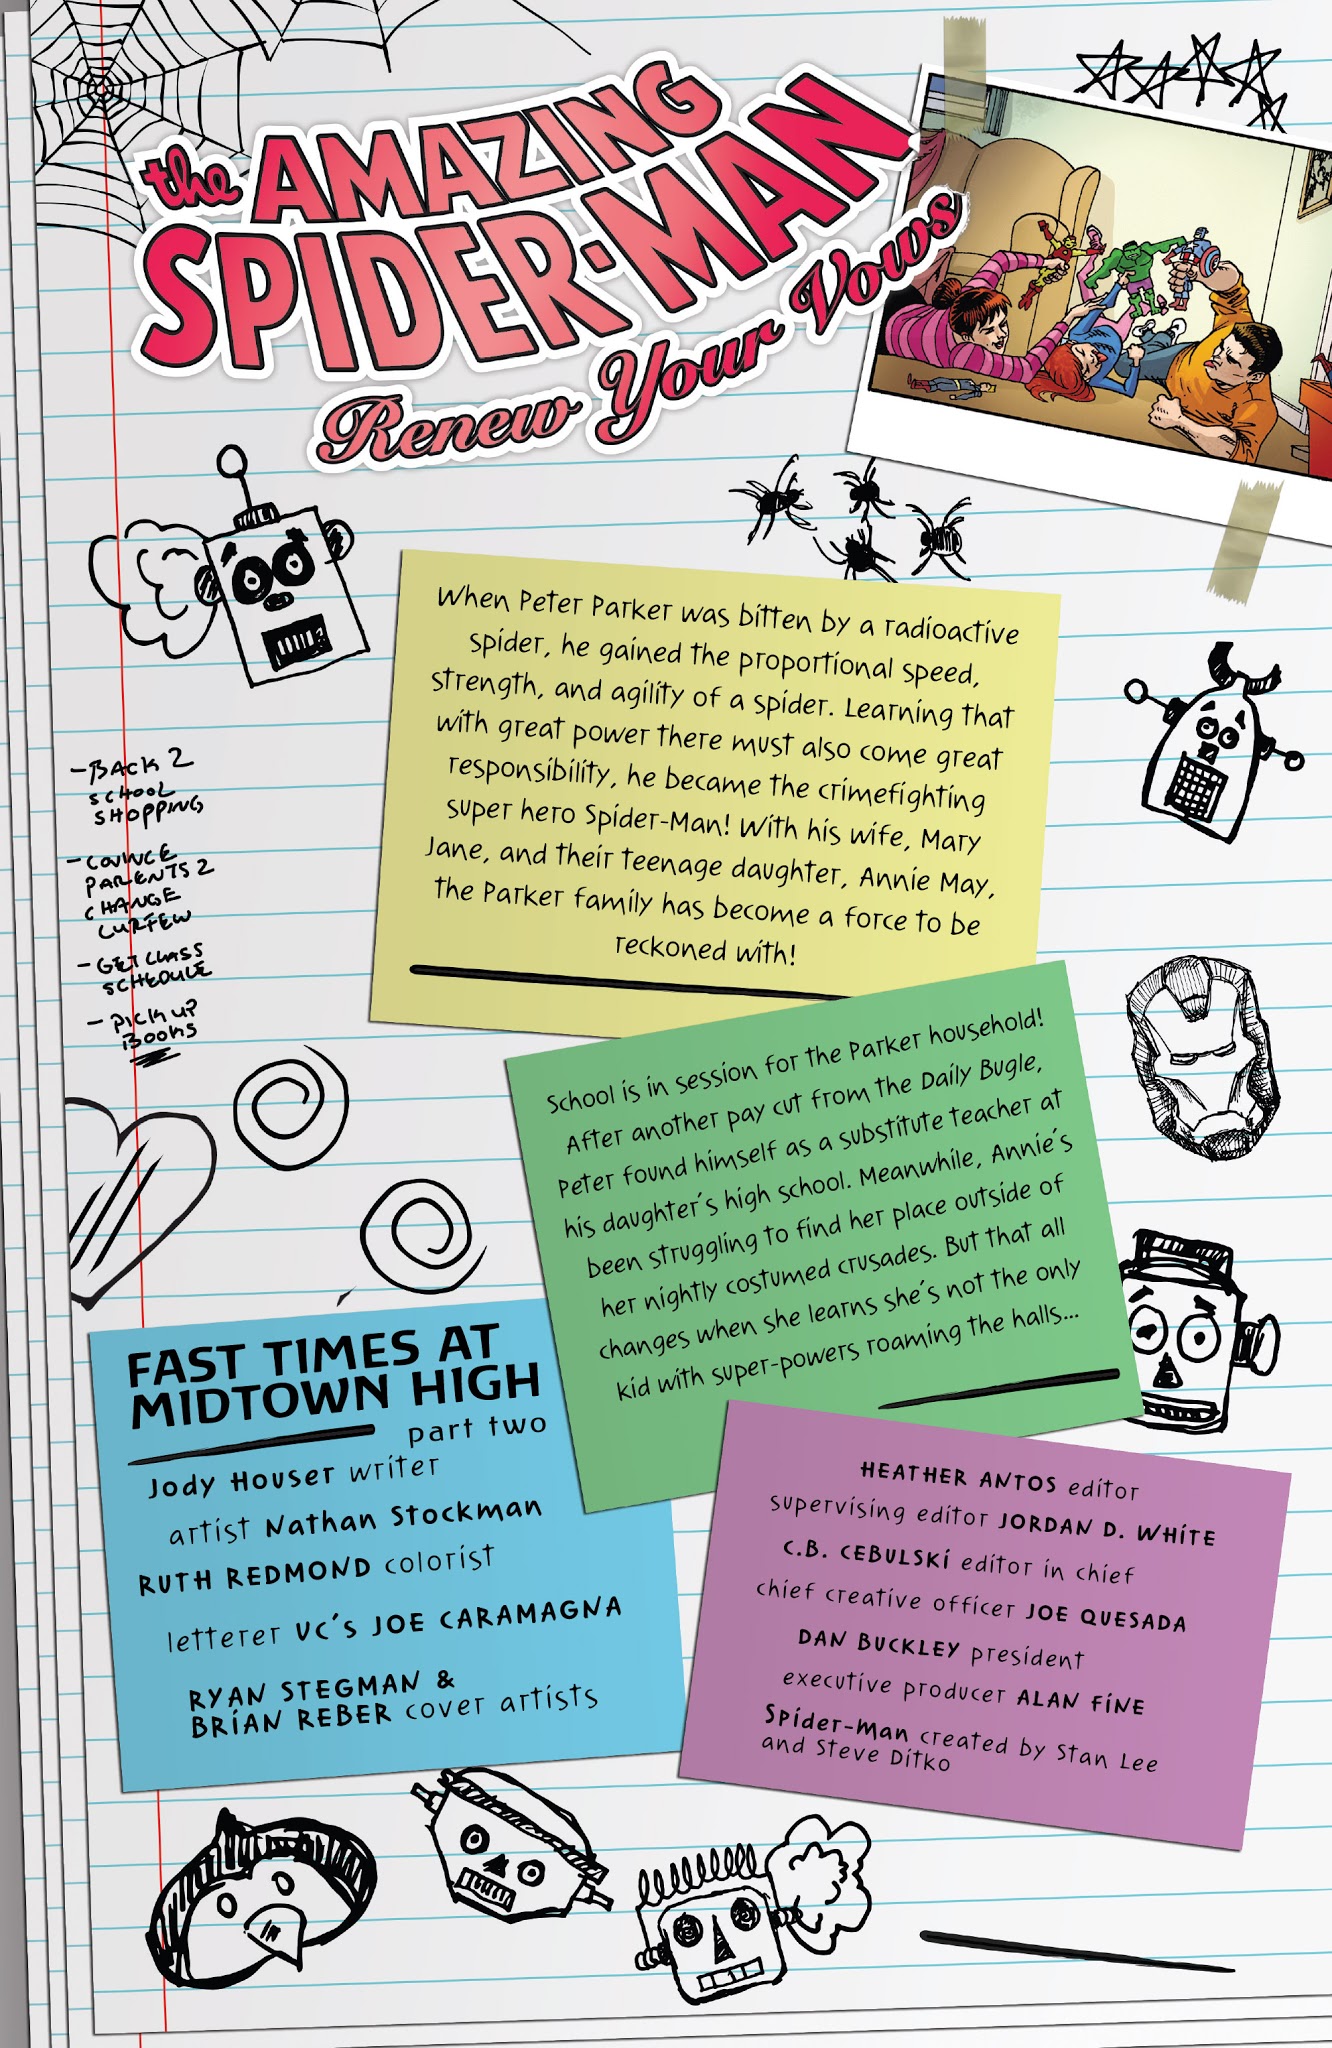 the AMAZING
SPIDER-MAN
Renew Your Vows
When Peter Parker was bitten by a radioactive
spider, he gained the proportional speed,
strength, and agility of a spider. Learning that
with great power there must also come great
responsibility, he became the crimefighting
super hero Spider-Man! With his wife, Mary
Jane, and their teenage daughter, Annie May,
the Parker family has become a force to be
reckoned with!
- BACK 2
SCHOOL
SHOPPING
- CONVINCE
PARENTS 2
CHANGE
CURFEW
- GET CLASS
SCHEDULE
- PICK UP
BOOKS
School is in session for the Parker household!
After another pay cut from the Daily Bugle,
Peter found himself as a substitute teacher at
his daughter's high school. Meanwhile, Annie's
been struggling to find her place outside of
her nightly costumed crusades. But that all
changes when she learns she's not the only
kid with super-powers roaming the halls...
FAST TIMES AT
MIDTOWN HIGH
part two
Jody Houser writer
artist Nathan Stockman
RUTH REDMOND colorist
letterer VC's JOE CARAMAGNA
RYAN STEGMAN &
BRIAN REBER cover artists
HEATHER ANTOS editor
supervising editor JORDAN D. WHITE
C.B. CEBULSKI editor in chief
chief creative officer JOE QUESADA
DAN BUCKLEY president
executive producer ALAN FINE
Spider-Man created by Stan Lee
and Steve Ditko